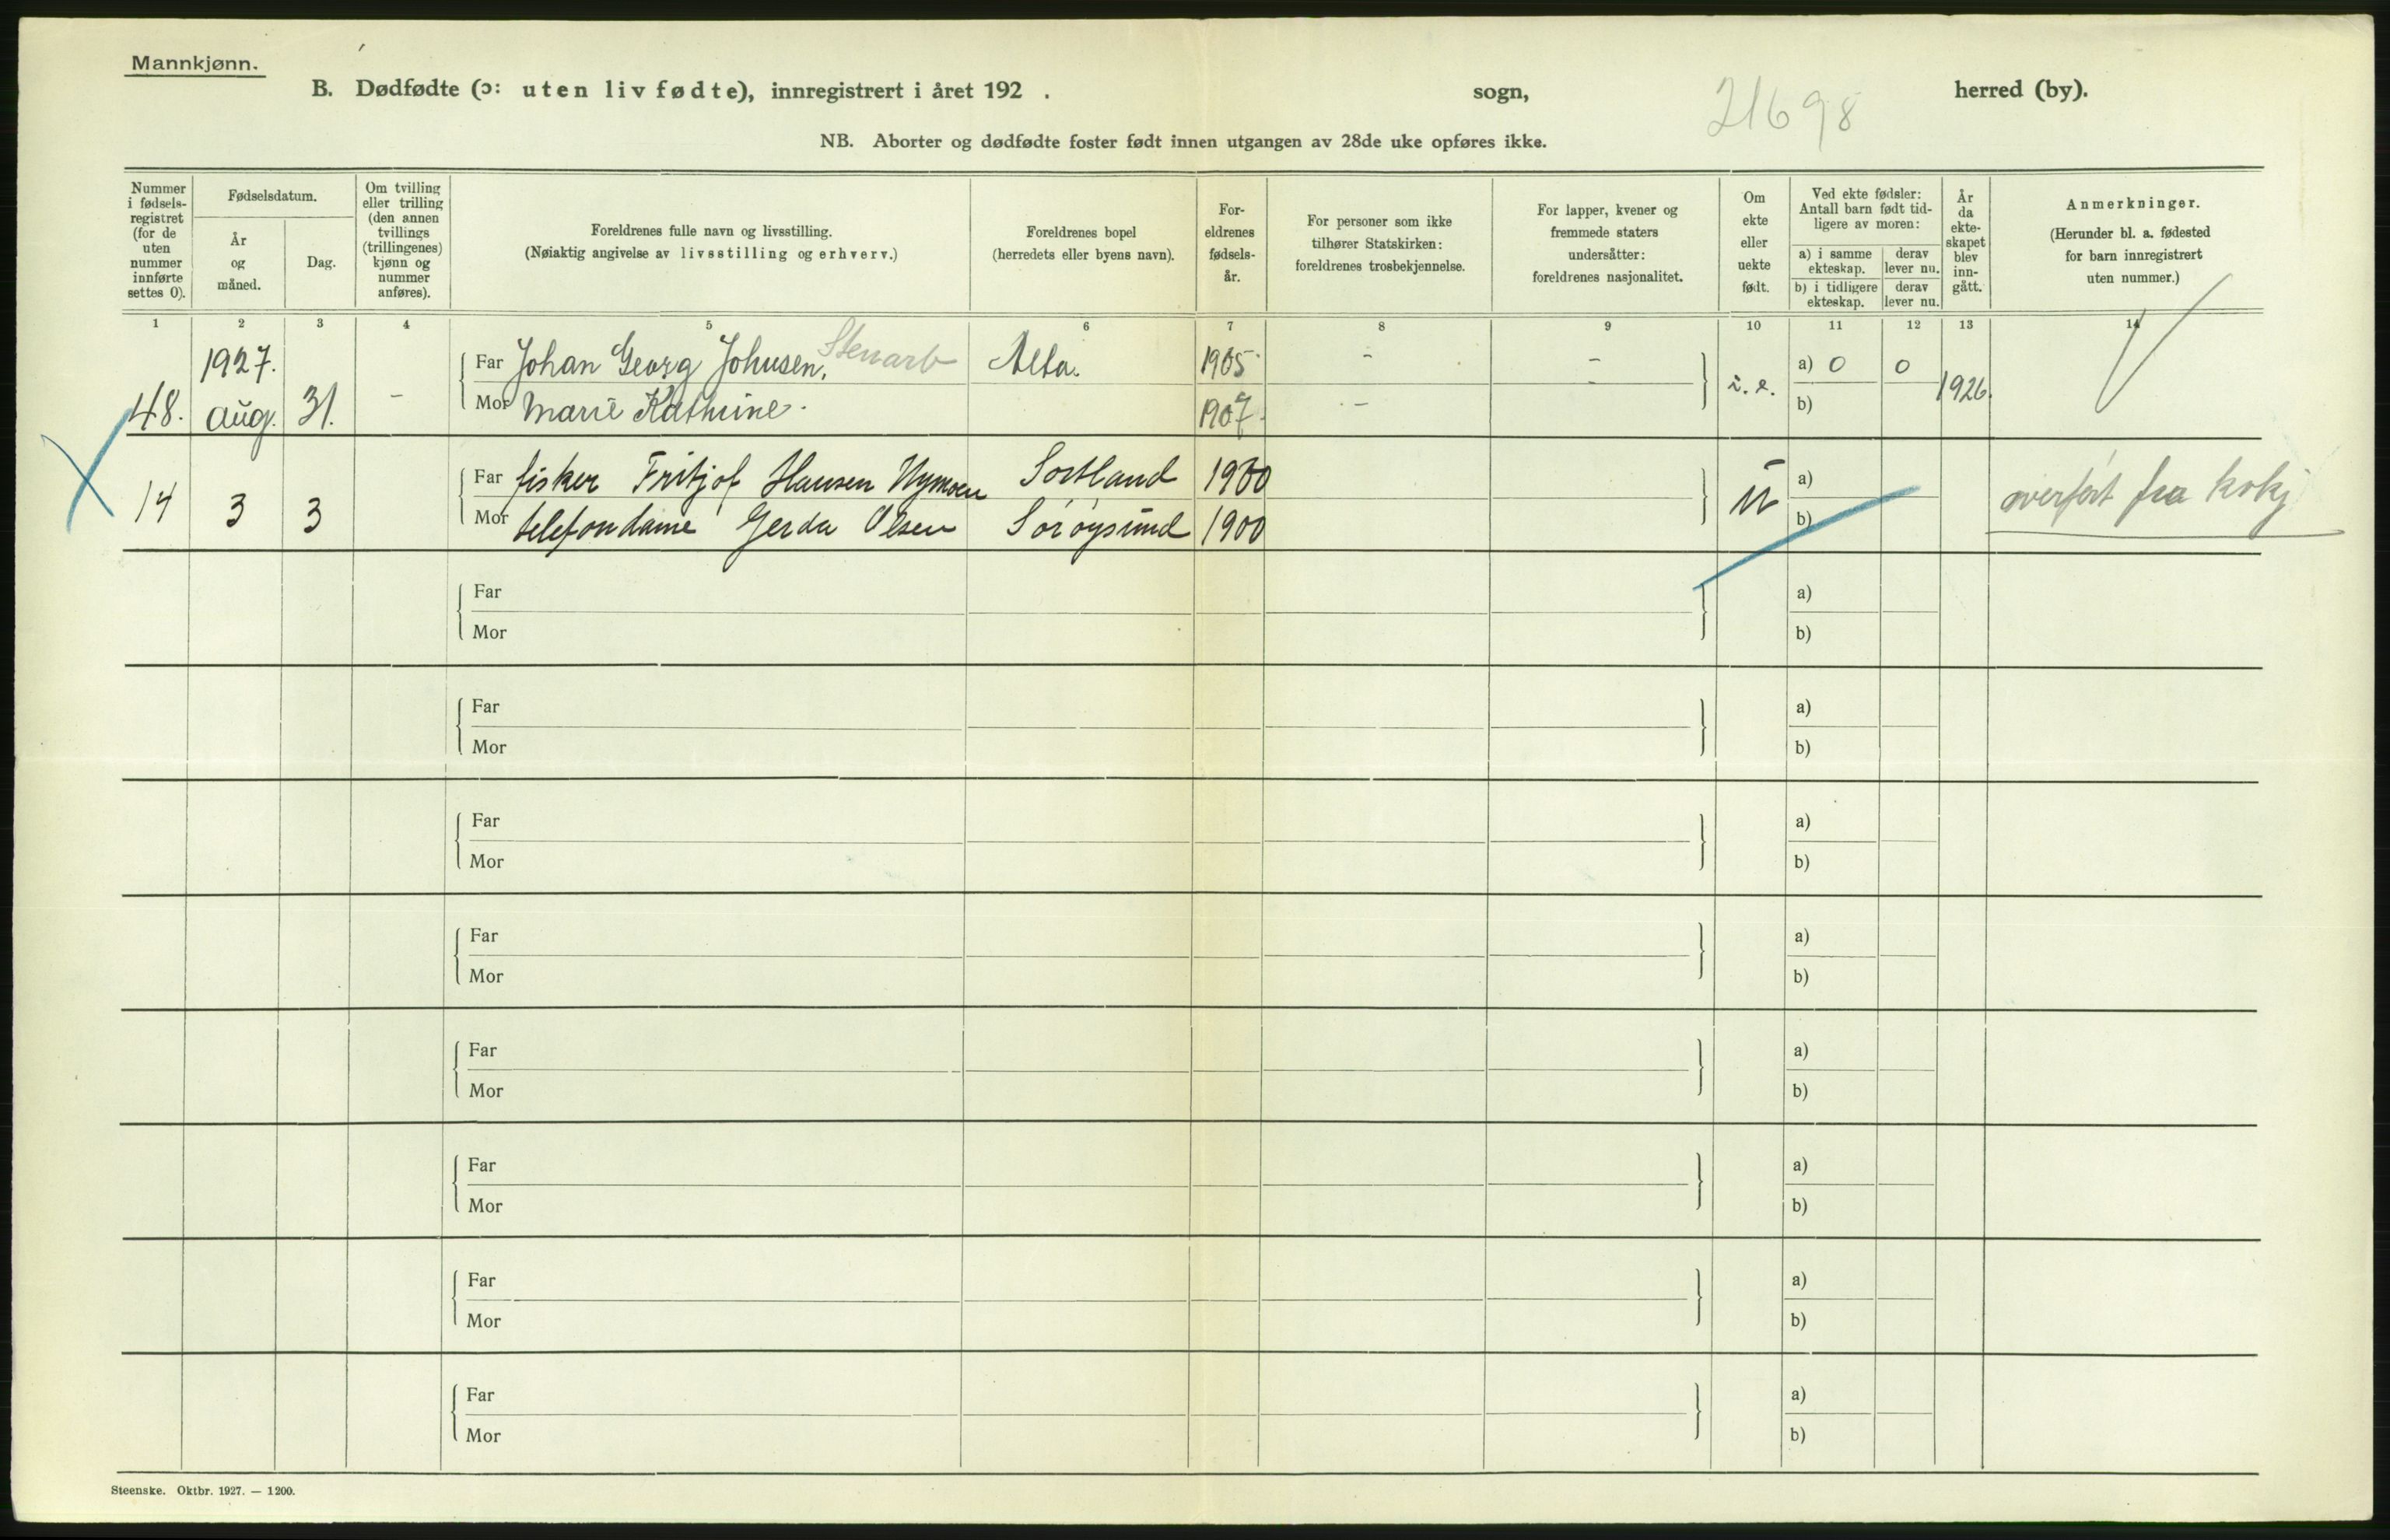 Mannkjønn.
B. Dødfødte (ɔ: uten liv fødte), innregistrert i året 192 . sogn, herred (by).
21698
NB. Aborter og dødfødte foster født innen utgangen av 28de uke opføres ikke.
Nummer
i fødsels-
registret
(for de
uten
nummer
innførte
settes 0).
Fødselsdatum.
År
og
måned.
Dag.
Om tvilling
eller trilling
(den annen
tvillings
(trillingenes)
kjønn og
nummer
anføres).
Foreldrenes fulle navn og livsstilling.
(Nøiaktig angivelse av livsstilling og erhverv.)
Foreldrenes bopel
(herredets eller byens navn).
For-
eldrenes
fødsels-
år.
For personer som ikke
tilhører Statskirken:
foreldrenes trosbekjennelse.
For lapper, kvener og
fremmede staters
undersåtter:
foreldrenes nasjonalitet.
Om
ekte
eller
uekte
født.
Ved ekte fødsler:
Antall barn født tid-
ligere av moren:
a) i samme
ekteskap.
derav
lever nu.
b) i tidligere
ekteskap.
derav
lever nu.
År
da
ekte-
skapet
blev
inn-
gått.
Anmerkninger.
(Herunder bl. a. fødested
for barn innregistrert
uten nummer.)
1 2 3 4 5 6 7 8 9 10 11 12 13 14
48. 1927. Aug. 31. -
Far Johan Georg Johnsen, Stenarb Alta. 1905 - -
Mor Marie Kathrine. 1907. -
i. e. a) 0 0 1926.
b)
14 3 3
Far fisker Fritjof Hansen Nymoen Sortland 1900
Mor telefondame Gerda Olsen Sørøysund 1900
u a)
b)
overført fra kvkj
Far a)
Mor b)
Far a)
Mor b)
Far a)
Mor b)
Far a)
Mor b)
Far a)
Mor b)
Far a)
Mor b)
Far a)
Mor b)
Far a)
Mor b)
Steenske. Oktbr. 1927. — 1200.